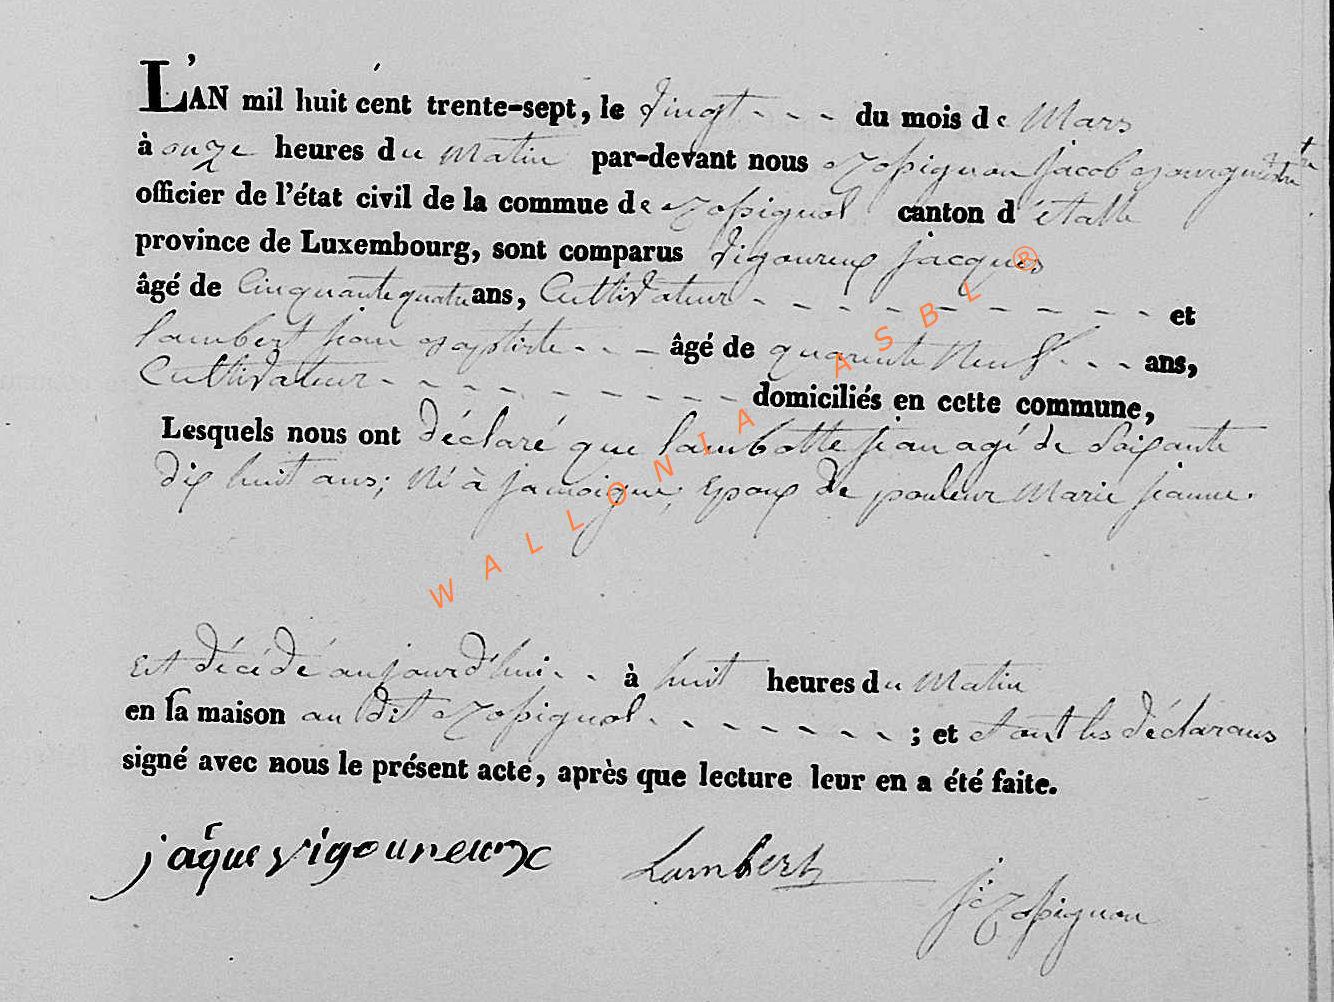 L'AN mil huit cent trente-sept, le vingt - - - du mois de Mars
à onze heures du Matin par-devant nous Rossignon jacob Bourgmestre
officier de l'état civil de la commue de Rossignol canton d'étalle
province de Luxembourg, sont comparus vigoureux jacques
âgé de Cinquante quatre ans, Cultivateur - - - - - - - - - et
lambert jean Baptiste - - - âgé de quarente Neuf - - - ans,
Cultivateur - - - - - - - - - domiciliés en cette commune,
Lesquels nous ont déclaré que lambotte jean agé de Soixante
dix huit ans; Né à jamoigne; Epoux de pouleur Marie jeanne.
Est décédé aujourd'hui - - à huit heures du Matin
en sa maison au dit Rossignol - - - - - - - ; et etant les déclarans
signé avec nous le présent acte, après que lecture leur en a été faite.
jaque vigoureux Lambert jc Rossignon
WALLONIA ASBL ®